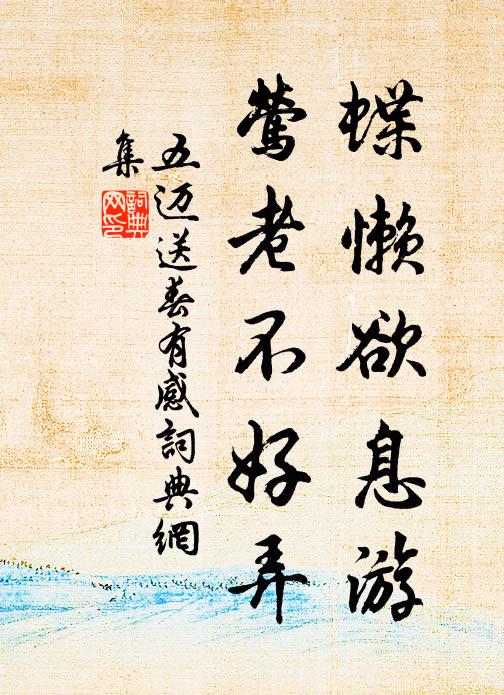 蝶懒欲息游
莺老不好弄
五迈送春有感詞典網
集
詞典
网印